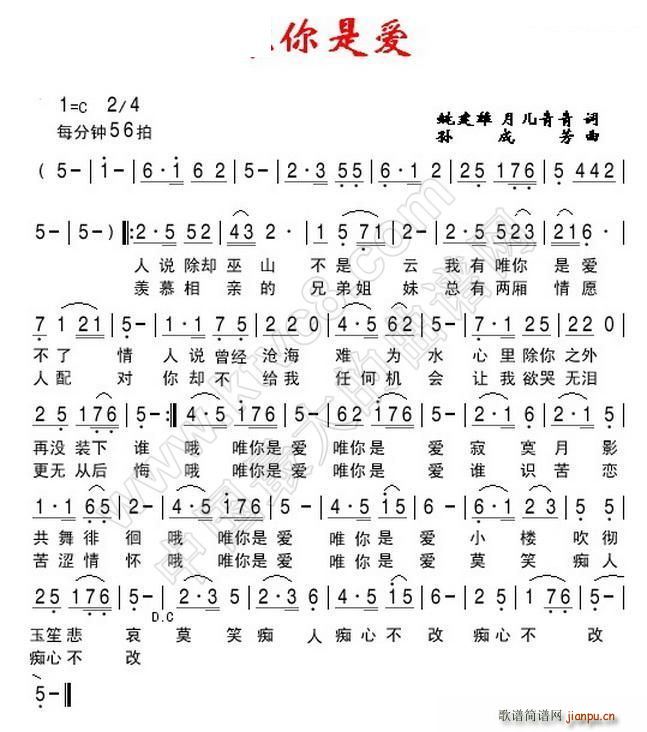 你是爱
1=C 2/4
每分钟56拍
姚建雄 月儿青青 词
孙成芳 曲
( 5 - | i - | 6 · i 6 2 | 5 - | 2 · 3 5 5 | 6 · i 2 | 2 5 1 7 6 | 5 4 4 2 |
5 - | 5 - ) |: 2 · 5 5 2 | 4 3 2 · | 1 5 7 1 | 2 - | 2 · 5 5 2 3 | 2 1 6 · |
人说除却巫山 不是 云 我有唯你 是爱
羡慕相 亲的 兄弟姐 妹 总有两厢 情愿
7 1 2 1 | 5 - | 1 · 1 7 5 | 2 2 0 | 4 · 5 6 2 | 5 - | 1 · 7 2 5 | 2 2 0 |
不了 情 人说曾经沧海 难 为水 心里除你之外
人配 对 你却不给我 任何机 会 让我欲哭无泪
2 5 1 7 6 | 5 - :| 4 · 5 1 7 6 | 5 - | 6 2 1 7 6 | 5 - | 2 · 1 6 | 2 · 1 5 |
再没装下 谁 哦 唯你是 爱 唯你是 爱 寂 寞月 影
更无从后 悔 哦 唯你是 爱 唯你是 爱 谁 识苦 恋
1 · 1 6 5 | 2 - | 4 · 5 1 7 6 | 5 - | 4 · 5 1 5 | 6 - | 6 · 1 2 3 | 5 - |
共舞徘 徊 哦 唯你是 爱 唯你是 爱 小 楼 吹彻
苦涩情 怀 哦 唯你是 爱 唯你是 爱 莫 笑 痴人
2 5 1 7 6 | 5 - | 2 · 3 6 | 2 · 3 6 | 5 - | 4 · 5 i 5 | 6 - | 2 5 1 7 6 |
D.C
玉笙悲 哀 莫 笑痴 人 痴心不 改 痴心不 改
痴心不 改
5 - ||
www.ktvc8.com
中国最大的曲谱网
歌谱简谱网 jianpu.cn